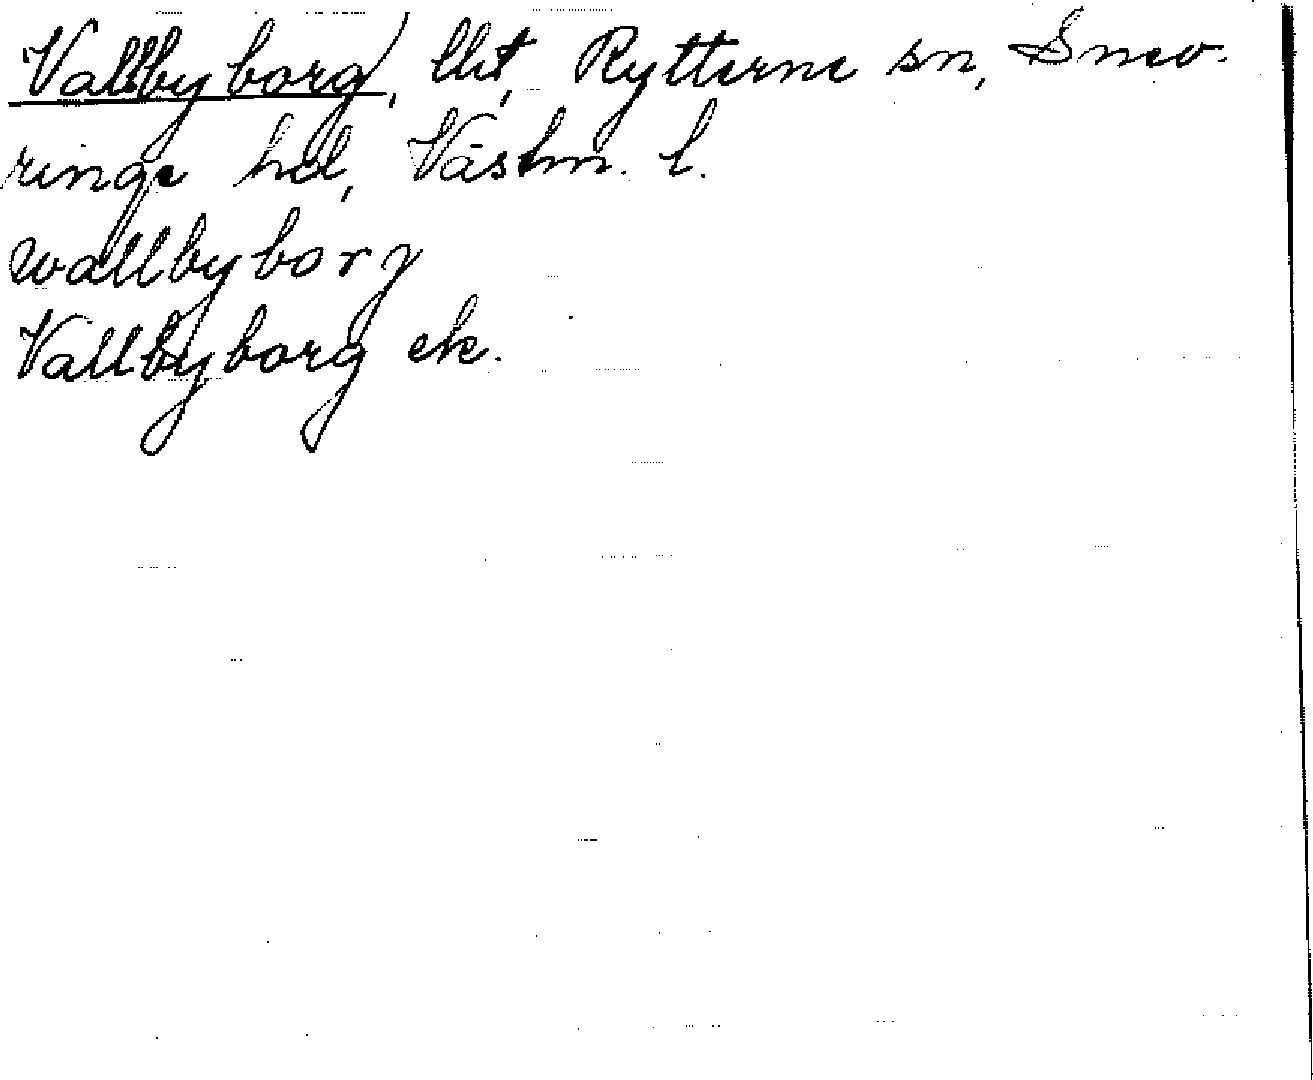 Vallbyborg), lht, Rytterne sn, Snev-
ringe hd, Västm. l.
wallbyborg
Vallbyborg ek.